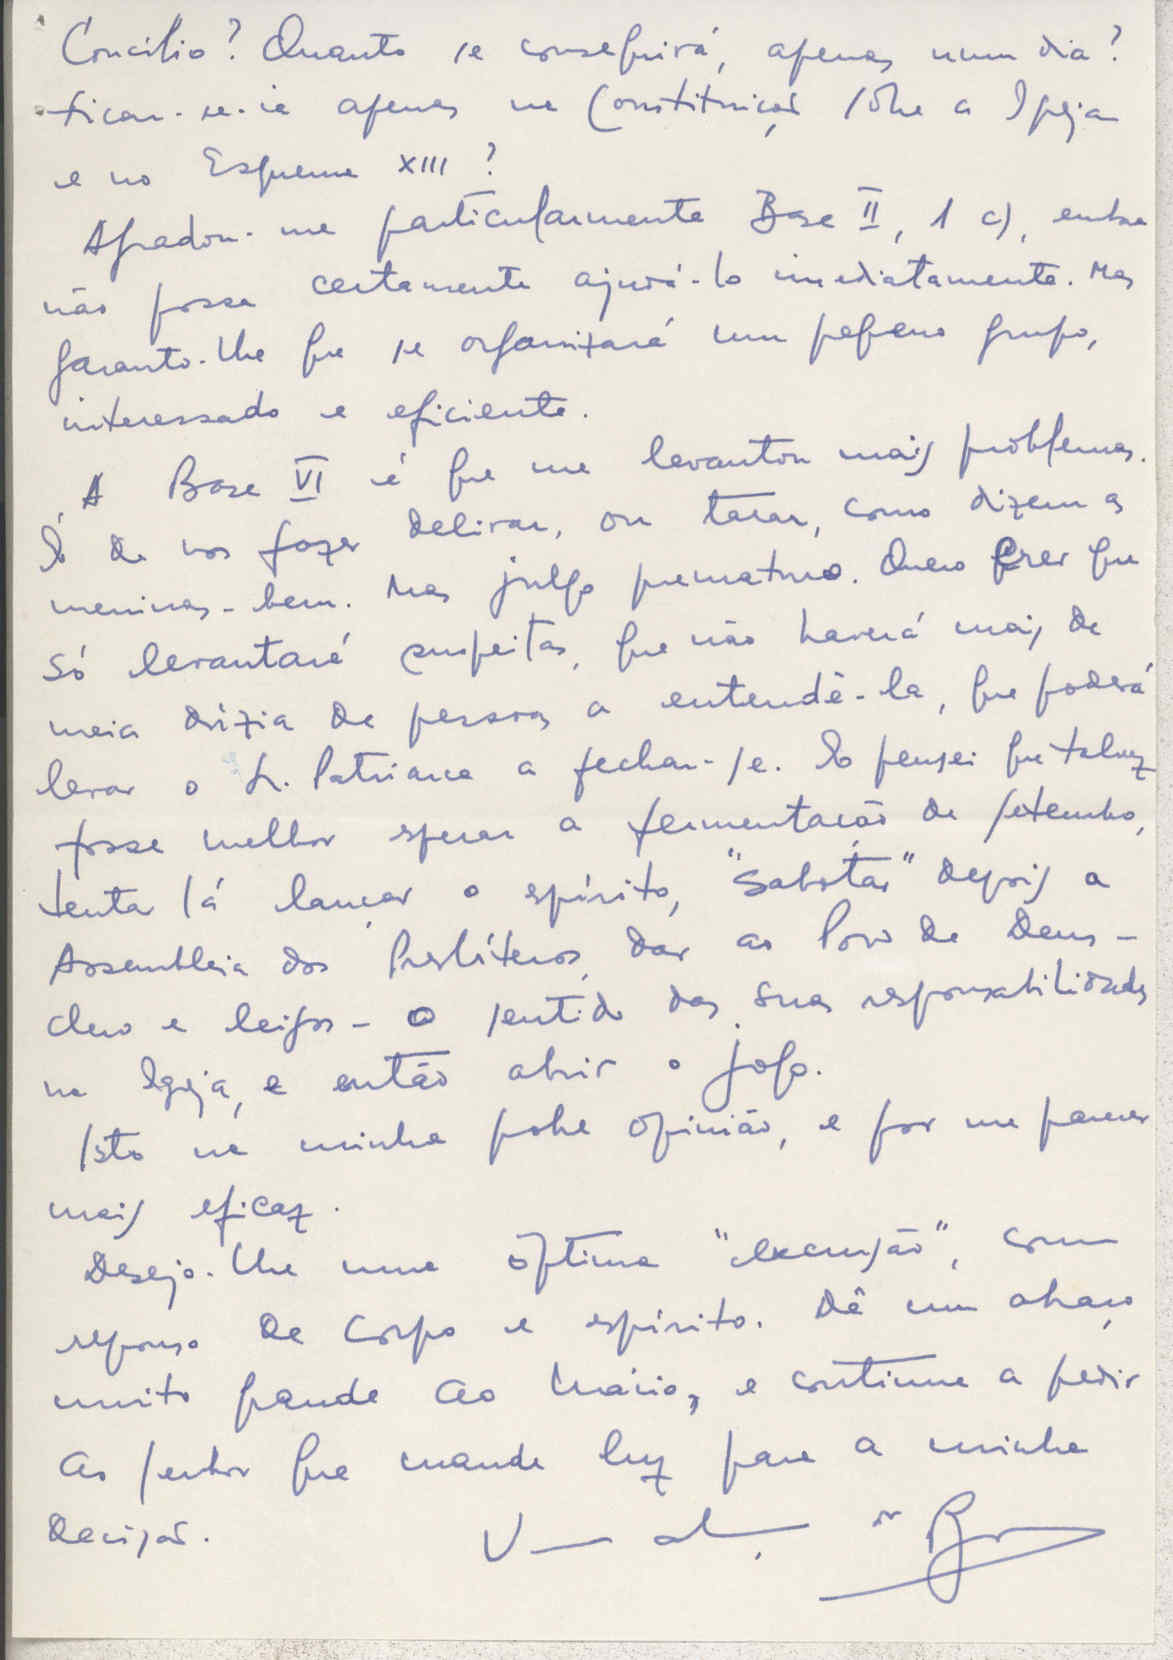 Concílio? Quanto se conseguirá, apenas num dia?
Ficar-se-ia apenas na Constituição sobre a Igreja
e no Esquema XIII?
Agradou-me particularmente Base II, 1 c), embora
não possa certamente ajudá-lo imediatamente. Mas
garanto-lhe que se organizará um pequeno grupo,
interessado e eficiente.
A Base VI é que me levantou mais problemas.
É de nos fazer delirar, ou tarar, como dizem as
meninas-bem. Mas julgo prematuro. Quero crer que
só levantará suspeitas, que não haverá mais de
meia dúzia de pessoas a entendê-la, que poderá
levar o Sr. Patriarca a fechar-se. Eu pensei que talvez
fosse melhor esperar a fermentação de setembro,
tentar lá lançar o espírito, "sabotar" depois a
Assembleia dos Presbíteros, dar ao Povo de Deus -
clero e leigos - o sentido das suas responsabilidades
na Igreja, e então abrir o jogo.
Isto na minha pobre opinião, e por me parecer
mais eficaz.
Desejo-lhe uma óptima "excursão", com
repouso de corpo e espírito. Dê um abraço
muito grande ao Mário, e continue a pedir
ao Senhor que mande luz para a minha
decisão.